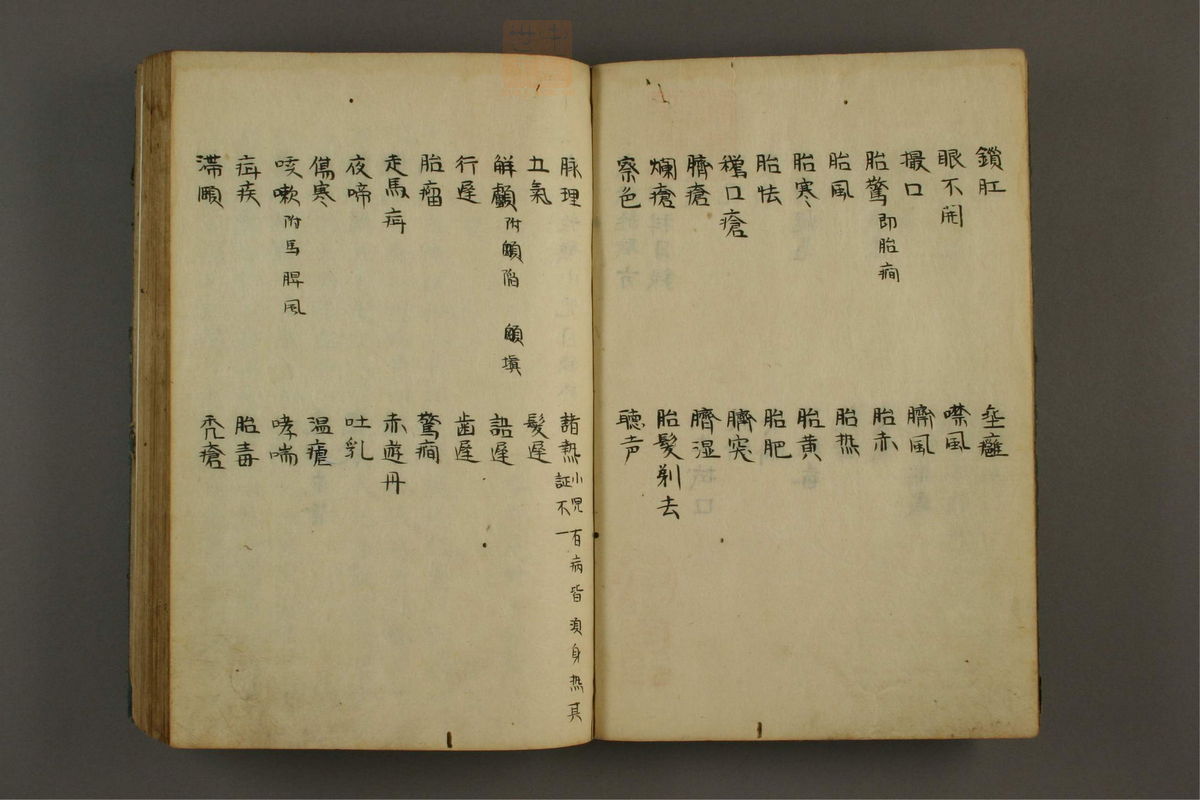 鎖肛
眼不開
撮口
胎驚 即胎癇
胎風
胎寒
胎怯
鵞口瘡
臍瘡
爛瘡
察色
垂癰
噤風
臍風
胎赤
胎热
胎黄
胎肥
臍突
臍湿
胎髪剃去
聴声
脉理
五氣
解顱 附 顖陷 顖塡
行遅
胎瘤
走馬疳
夜啼
傷寒
咳嗽 附馬脾風
疳疾
滞頤
諸熱 小児百病皆須身热其証不一
髪遅
語遅
歯遅
驚癇
赤遊丹
吐乳
温瘧
哮喘
胎毒
禿瘡